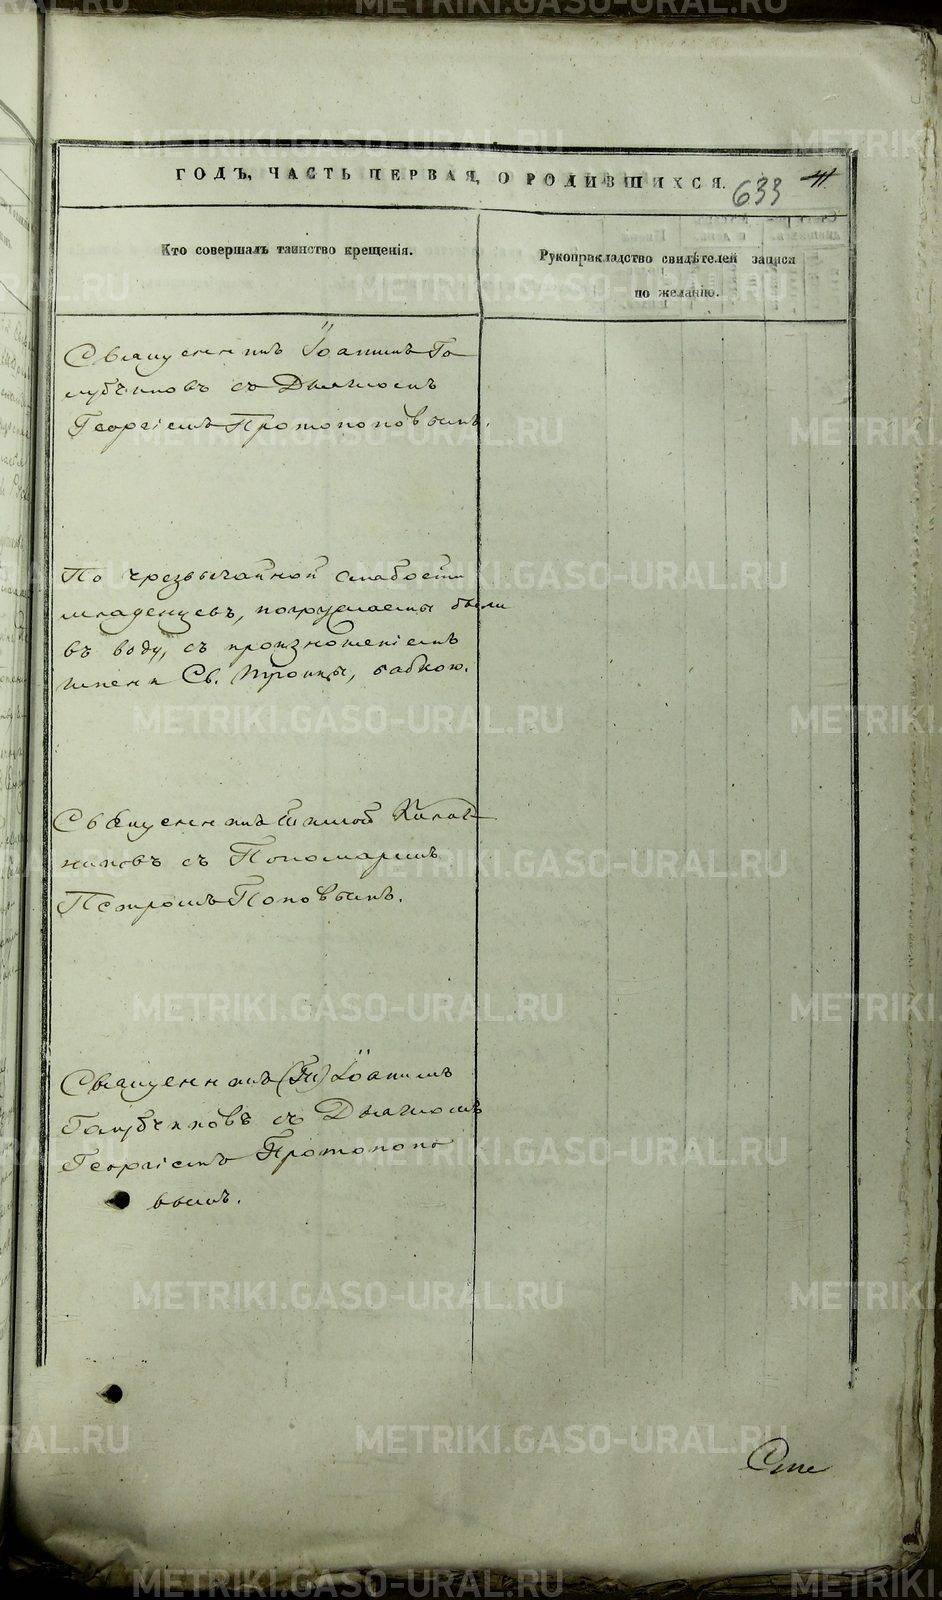 ГОДЪ, ЧАСТЬ ПЕРВАЯ, О РОДИВШИХСЯ.
633
Кто совершалъ таинство крещенія.
Рукоприкладство свидѣтелей записи
по желанію.
Священникъ Іоаннъ Го
лубчиковъ съ Дьякономъ
Георгіемъ Протопоповымъ.
По чрезвычайной слабости
младенцевъ, погружаемы были
въ воду, съ произношеніемъ
имени Св. Троицы, бабкою.
Священникъ
никовъ съ Пономаремъ
Петромъ Поповымъ.
Священникъ Іоаннъ
Голубчиковъ съ Дьякономъ
Георгіемъ Протопопо
вымъ.
METRIKI.GASO-URAL.RU